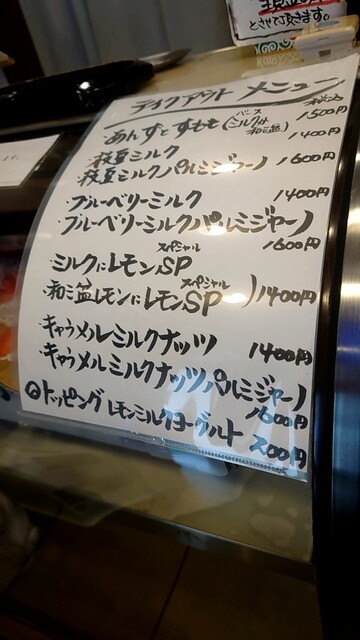 とさせて頂きます。
テイクアウト メニュー
税込
あんずとすもも(ベース ミルクは 和三盆) 1500円
枝豆ミルク 1400円
枝豆ミルクパルミジャーノ 1600円
ブルーベリーミルク 1400円
ブルーベリーミルクパルミジャーノ 1600円
ミルクにレモンSP スペシャル
和三盆レモンにレモンSP スペシャル ) 1400円
キャラメルミルクナッツ 1400円
キャラメルミルクナッツパルミジャーノ 1600円
トッピング レモンミルクヨーグルト 200円